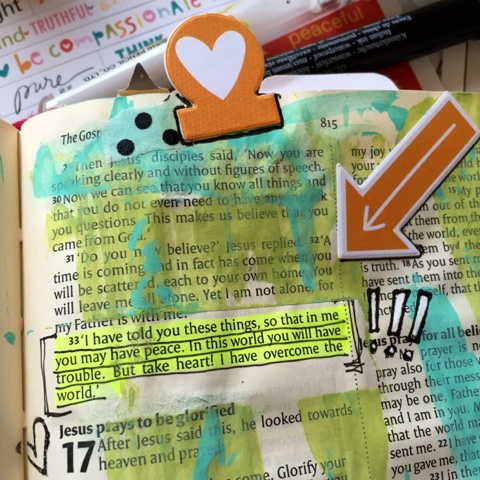 TRUTHFUL
be compassionate
THINK
peaceful
pure
The Gosp
815
29 Then Jesus' disciples said, 'Now you are
speaking clearly and without figures of speech.
30 Now we can see that you know all things and
that you do not even need to have any
you questions. This makes us believe that you
came from God.
31 'Do you now believe?' Jesus replied. 32 'A
time is coming and in fact has come when you
will be scattered, each to your own home. You
will leave me all alone. Yet I am not alone, for
my Father is with me.
33 'I have told you these things, so that in me
you may have peace. In this world you will have
trouble. But take heart! I have overcome the
world.'
!!!
Jesus prays to be glorified
17 After Jesus said this, he looked towards
heaven and pray
some. Glorify your
my joy
15 My p
out of th
them from
them by the
the world, even
is truth. 18 As you sent m
have sent them into the
Jesus prays for all beli
prayer is no
pray also for those w
through their mess
may be one, Father
and I am in you. M
that the world ma
sent me. 22 I have
you gave me, that
23 I in them